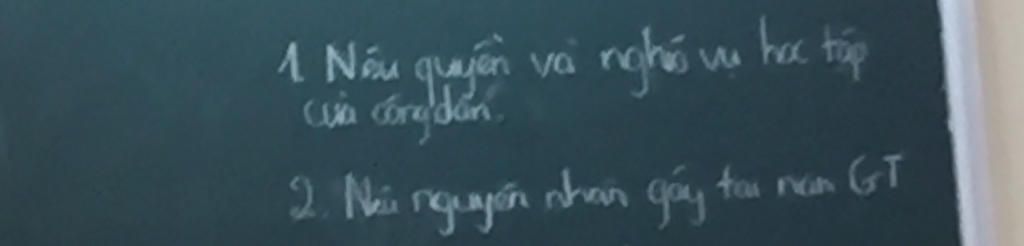 1 Nêu quyền và nghĩa vụ học tập
của công dân.
2. Nêu nguyên nhân gây tai nạn GT